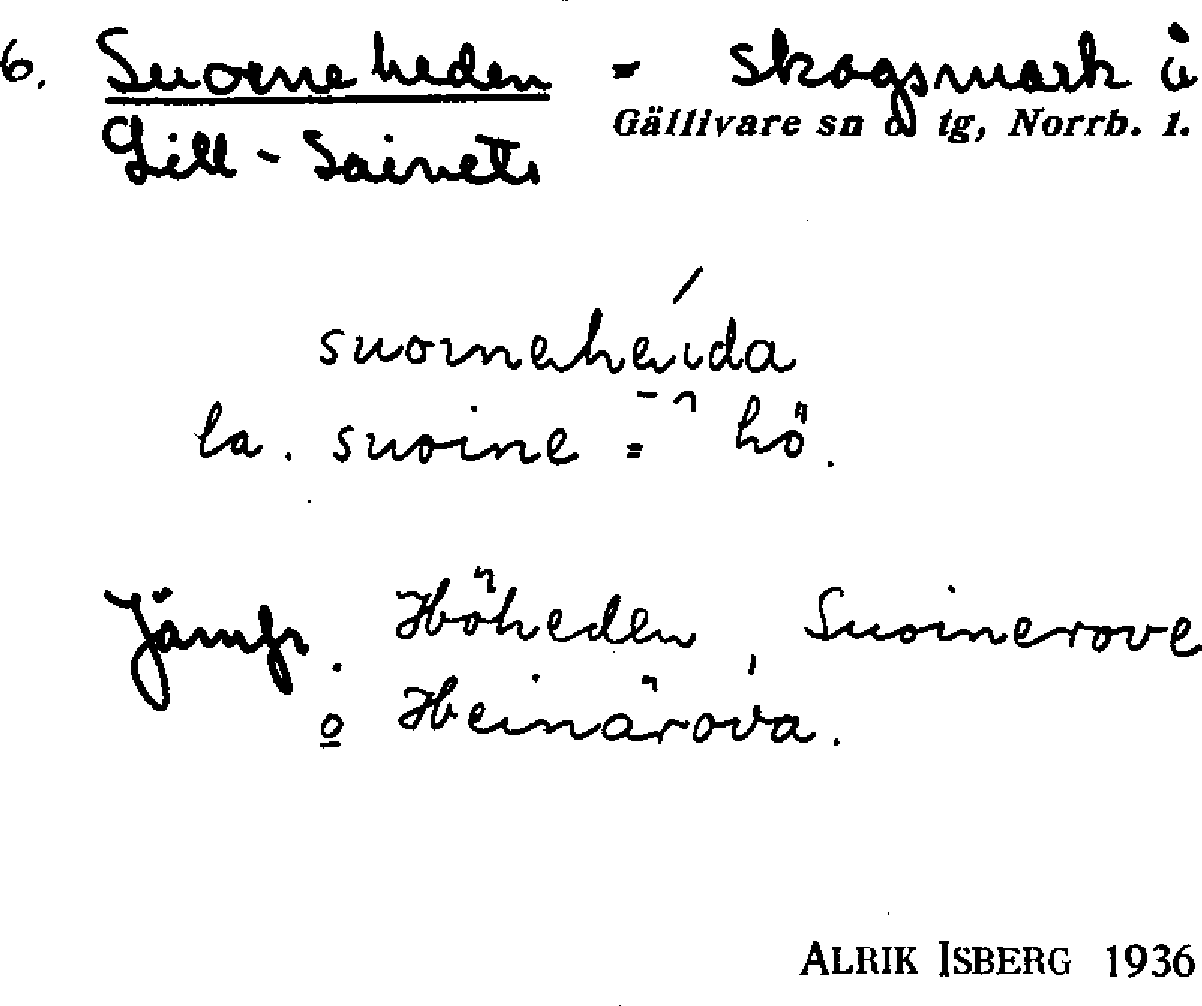 6. Suorneheden = skogsmark i
Gällivare sn o tg, Norrb. l.
Lill-Saivets
suorneheida
la. suoine = hö.
Jämför. Höheden, Suoinerove
o Heinärova.
ALRIK ISBERG 1936